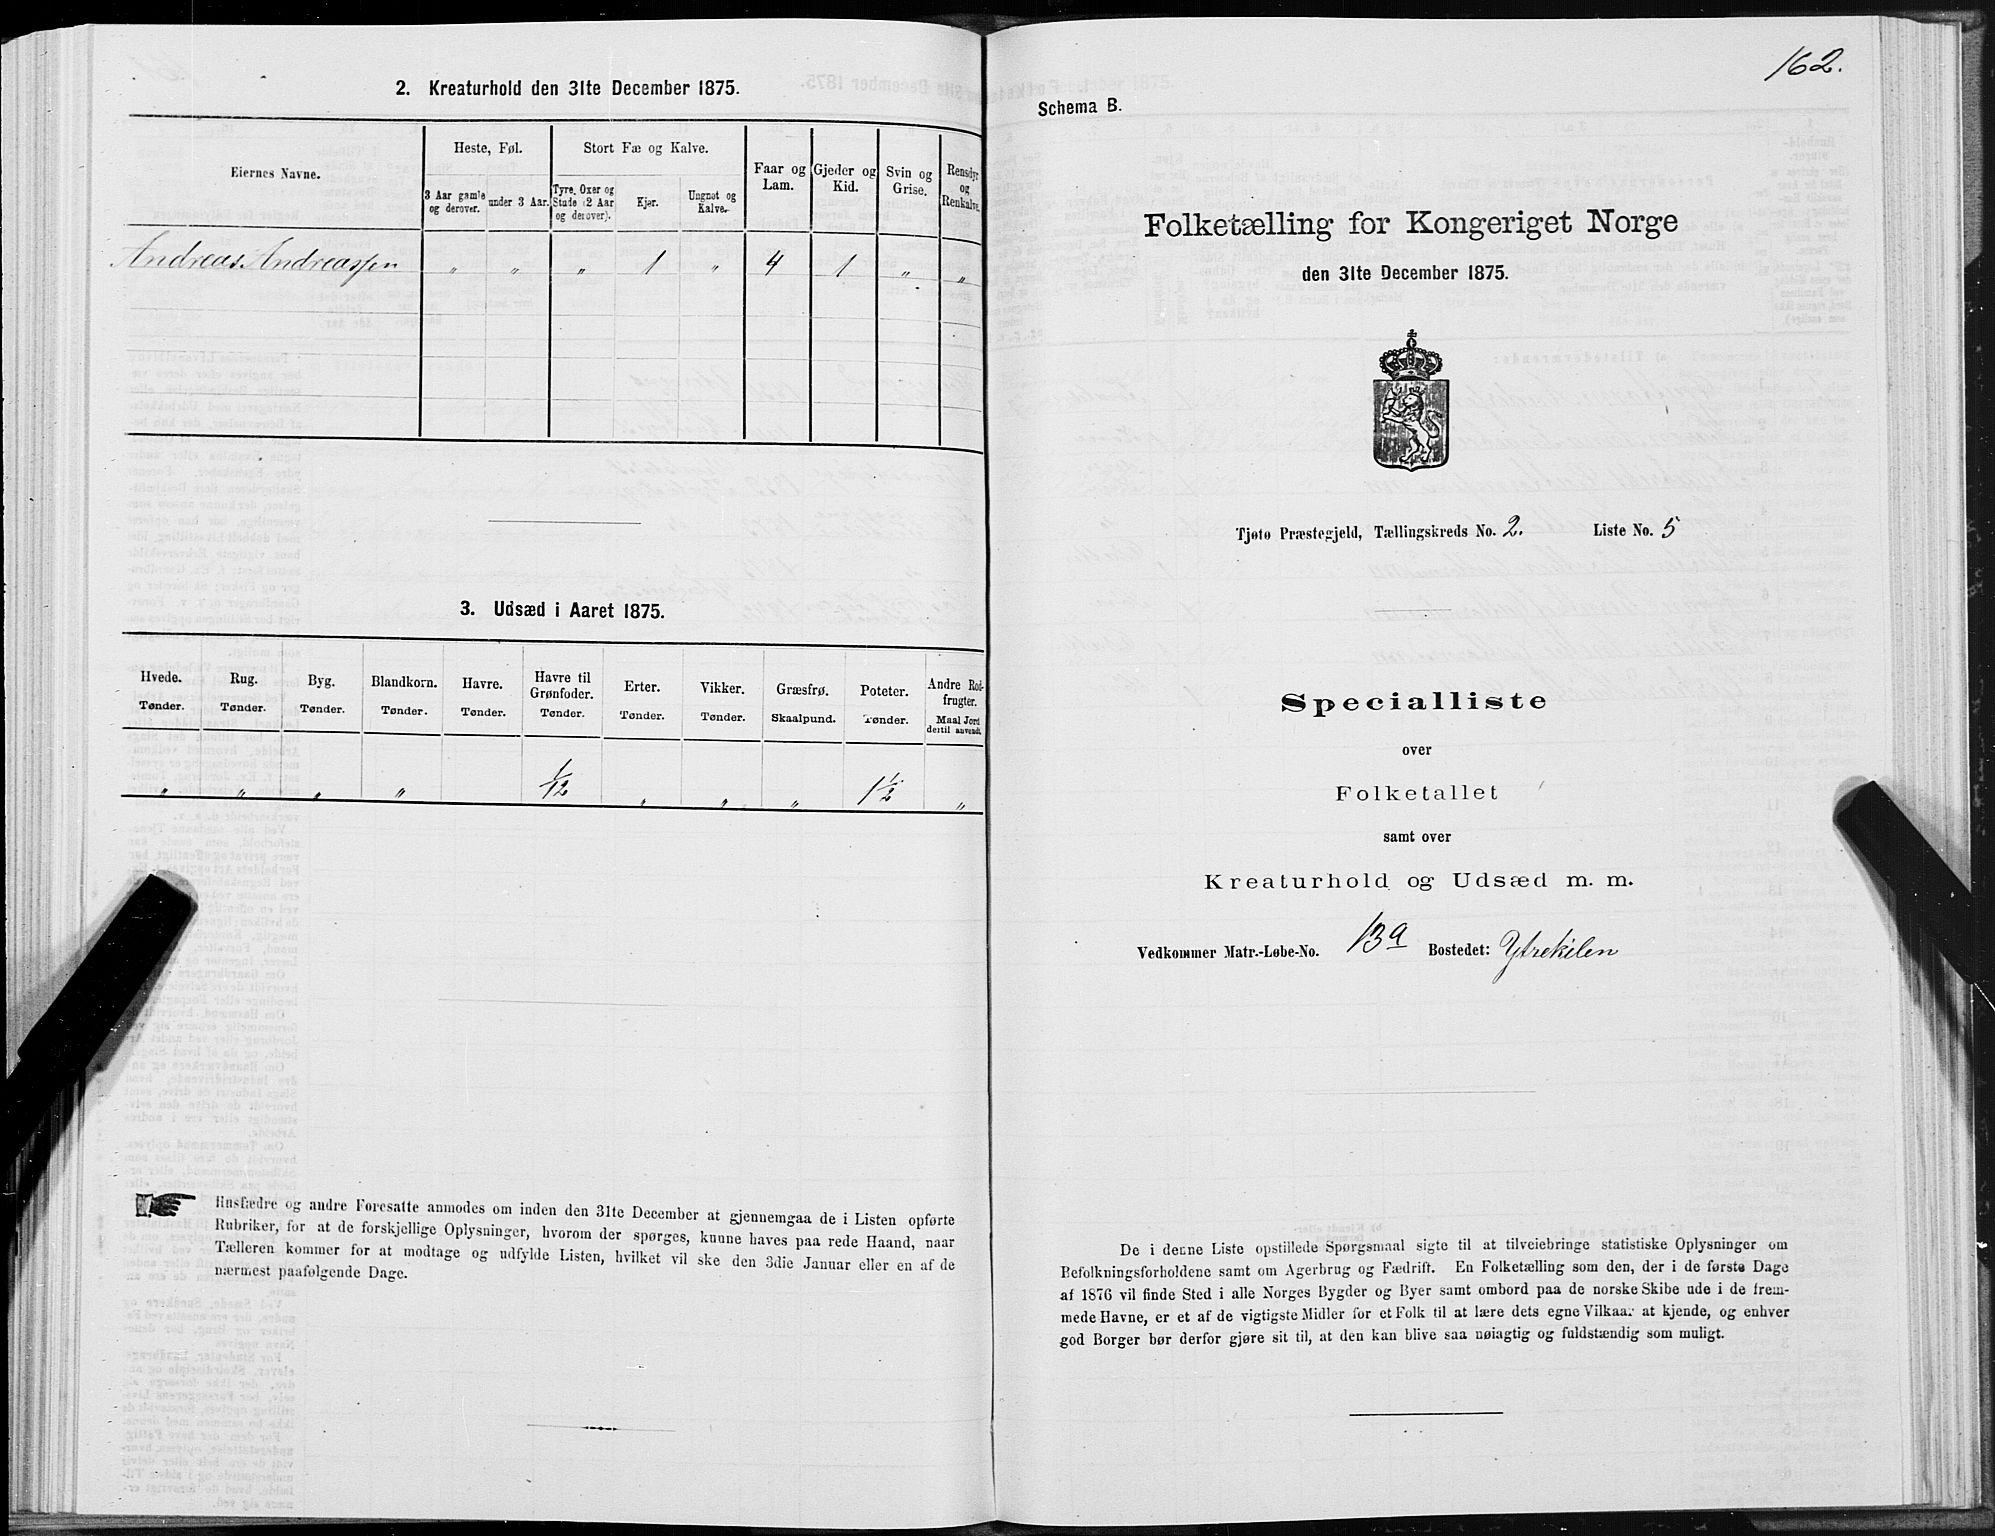 2. Kreaturhold den 31te December 1875.
Eiernes Navne.
Heste, Føl.
Stort Fæ og Kalve.
Faar og Lam.
Gjeder og Kid.
Svin og Grise.
Rensdyr og Renkalve.
3 Aar gamle og derover.
under 3 Aar.
Tyre, Oxer og Stude (2 Aar og derover).
Kjør.
Ungnøt og Kalve.
Andreas Andreassen " " " 1 " 4 1 " "
3. Udsæd i Aaret 1875.
Hvede. Rug. Byg. Blandkorn. Havre. Havre til Grønfoder. Erter. Vikker. Græsfrø. Poteter. Andre Rodfrugter.
Tønder. Tønder. Tønder. Tønder. Tønder. Tønder. Tønder. Tønder. Skaalpund. Tønder. Maal Jord dertil anvendt.
" " " " 1/12 " " " 1 1/2 "
Husfædre og andre Foresatte anmodes om inden den 31te December at gjennemgaa de i Listen opførte
Rubriker, for at de forskjellige Oplysninger, hvorom der spørges, kunne haves paa rede Haand, naar
Tælleren kommer for at modtage og udfylde Listen, hvilket vil ske den 3die Januar eller en af de
nærmest paafølgende Dage.
162.
Schema B.
Folketælling for Kongeriget Norge
den 31te December 1875.
Tjøtø Præstegjeld, Tællingskreds No. 2. Liste No. 5
Specialliste
over
Folketallet
samt over
Kreaturhold og Udsæd m. m.
Vedkommer Matr.-Løbe-No. 13a Bostedet: Ytrekilen
De i denne Liste opstillede Spørgsmaal sigte til at tilveiebringe statistiske Oplysninger om
Befolkningsforholdene samt om Agerbrug og Fædrift. En Folketælling som den, der i de første Dage
af 1876 vil finde Sted i alle Norges Bygder og Byer samt ombord paa de norske Skibe ude i de frem-
mede Havne, er et af de vigtigste Midler for et Folk til at lære dets egne Vilkaar at kjende, og enhver
god Borger bør derfor gjøre sit til, at den kan blive saa nøiagtig og fuldstændig som muligt.